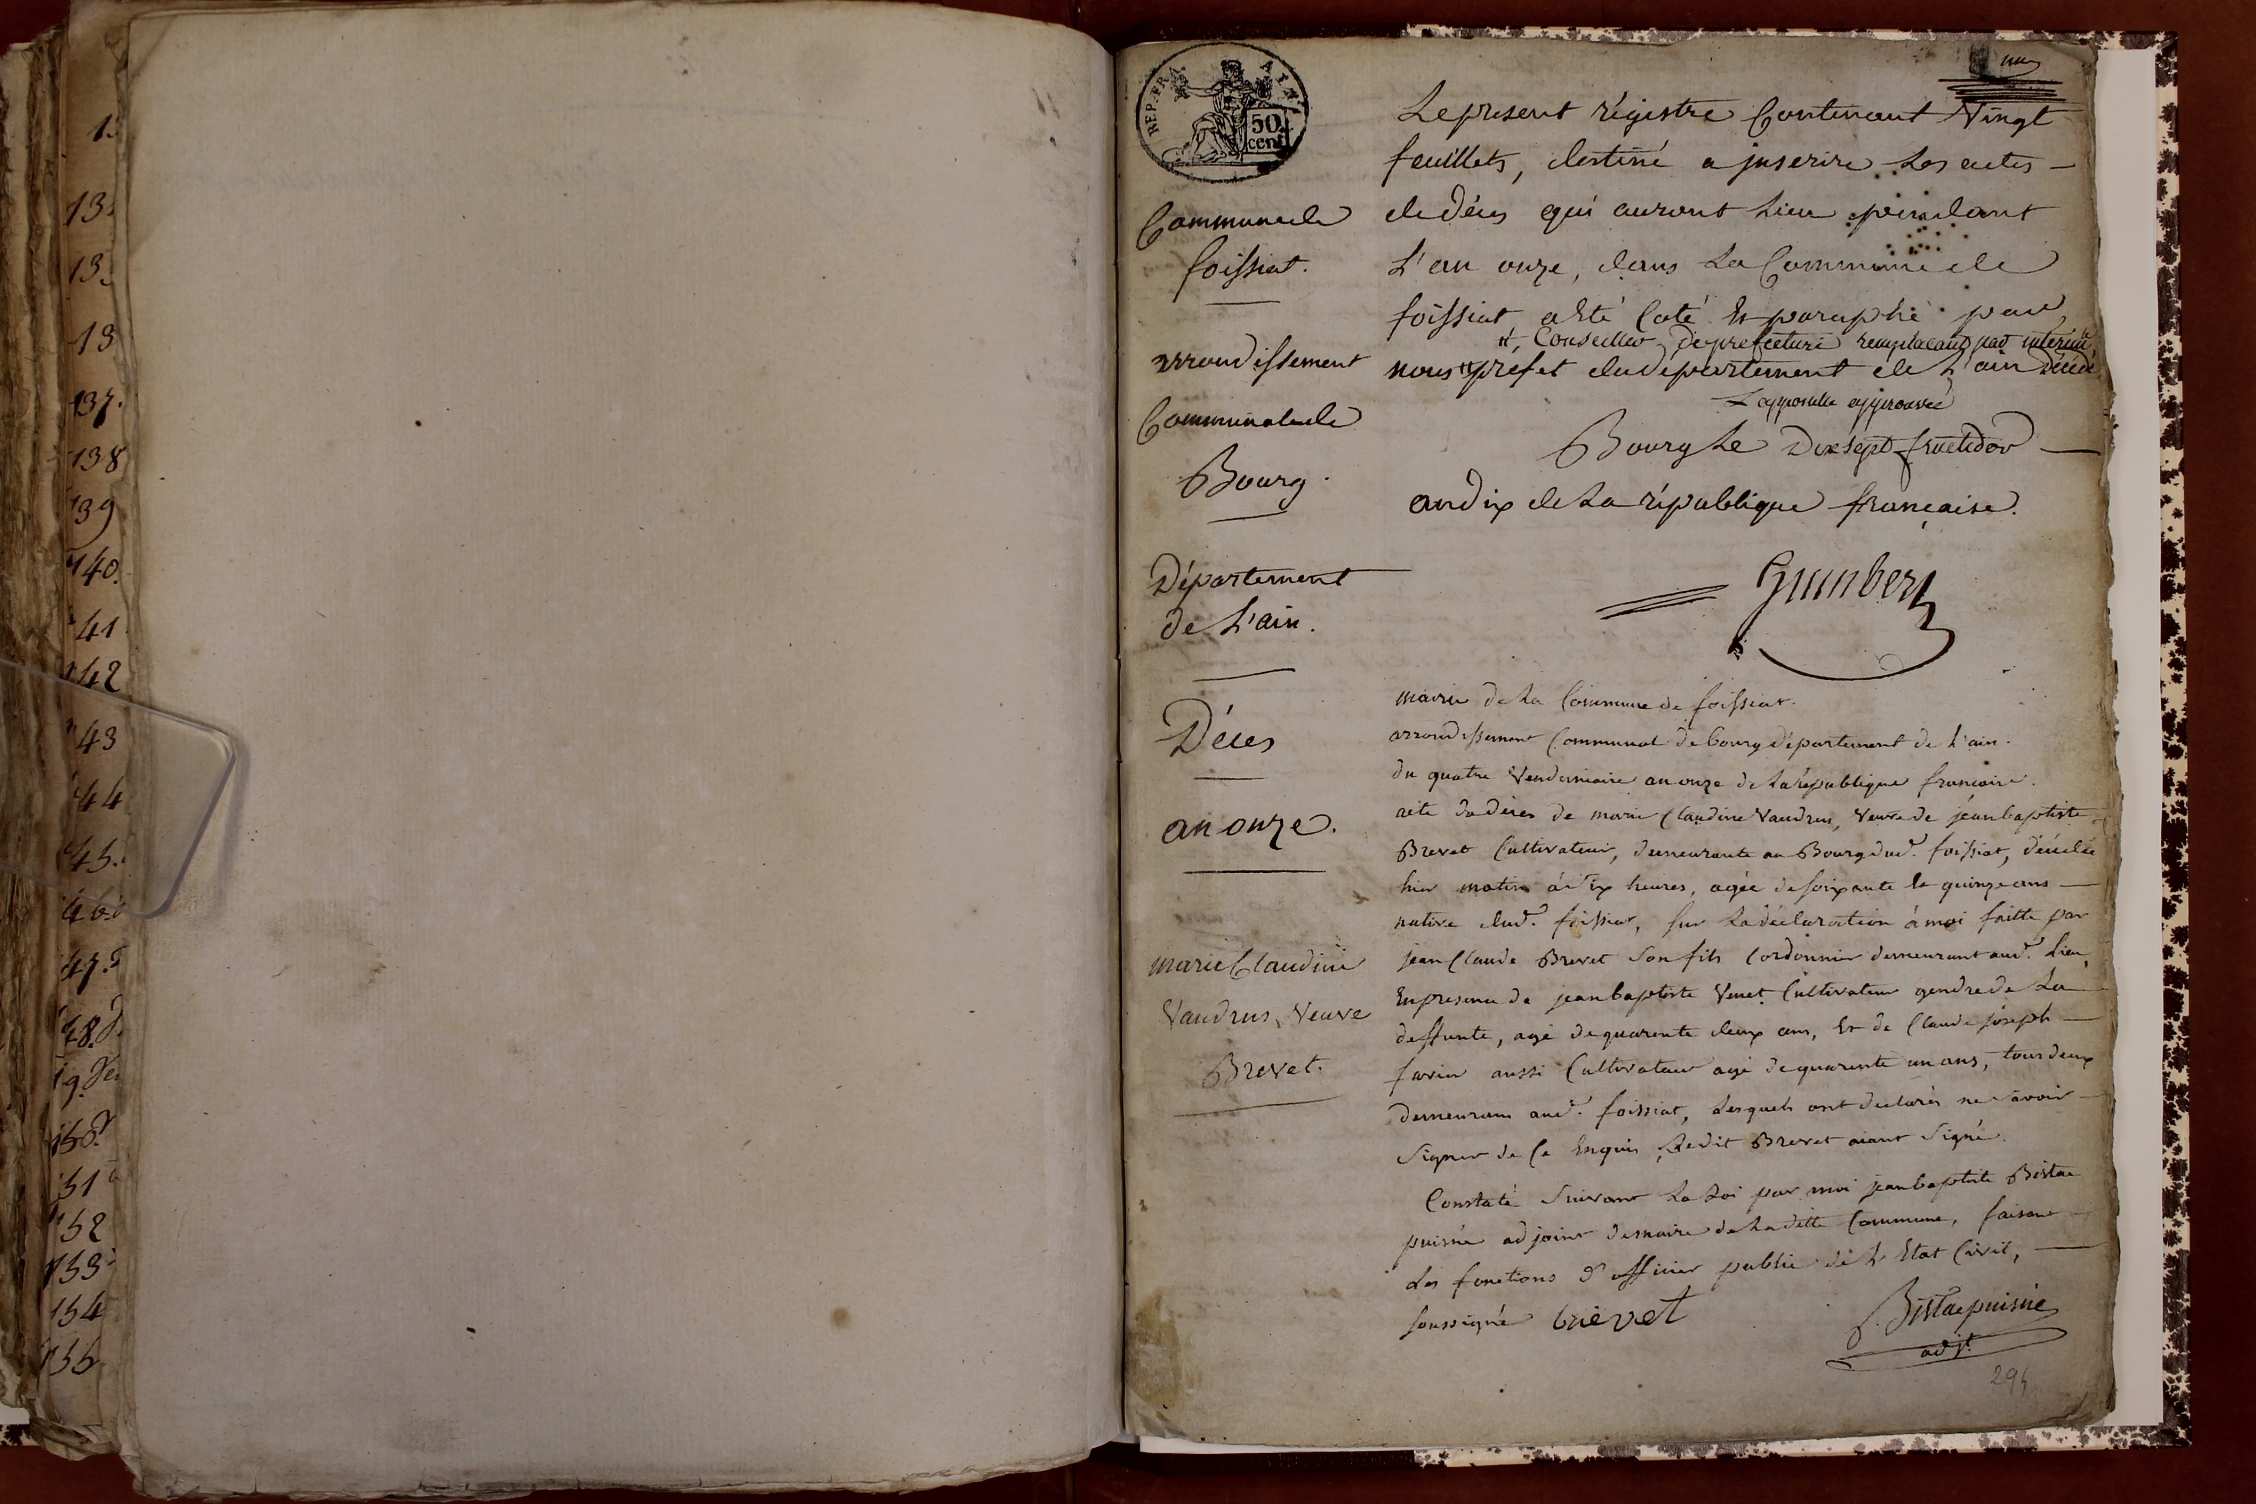 13
13
13
13
137.
138
139
140.
141
142
143
144
145.
146.
147.
148.
149.
150.
151
152
153
154
155
REP. FRA.
50
cent
un
Le present régistre Contenant Vingt
feuillets, destiné a jnscrire Les actes
de décés qui auront Lieu pendant
L'an onze, dans La Commune de
foissiat a Eté Coté Et paraphé par
Conseiller de prefecture remplaçant par interim
nous préfet du département de L'ain décédé
L'apposulle approuvée
Bourg Le Dix sept fructidor
an dix de La république française.
Communede
foissiat.
arrondissement
Communalede
Bourg.
Département
de L'ain.
Décés
an onze.
marie Claudine
Vaudrus, Veuve
Brevet.
mairie de La Commune de foissiat.
arrondissement Communal de bourg département de L'ain.
du quatre Vendemiaire an onze de La république francaise.
acte de décés de marie Claudine Vaudrus, Veuve de jéanbaptiste
Brevet Cultivateur, demeurante au Bourg dud. foissiat, décédée
hier matin à dix heures, agée de soixante Et quinze ans
native dud. foissiat, sur La déclaration à moi faitte par
jean Claude Brevet son fils Cordonnier demeurant aud. Lieu,
En presence de jeanbaptiste Venet Cultivateur gendre de La
deffunte, agé de quarente deux ans, Et de Claude joseph
favier aussi Cultivateur agé de quarente un ans, tous deux
demeurans aud. foissiat, Lesquels ont declarés ne savoir
signer de Ce Enquis, Ledit Brevet aiant signé.
Constaté suivant La Loi par moi jeanbaptiste Bistac
puisné adjoint demaire de Laditte Commune, faisant
Les fonctions d'officier public de L'Etat Civil,
soussigné brevet
Bistac puisné
adjt.
294